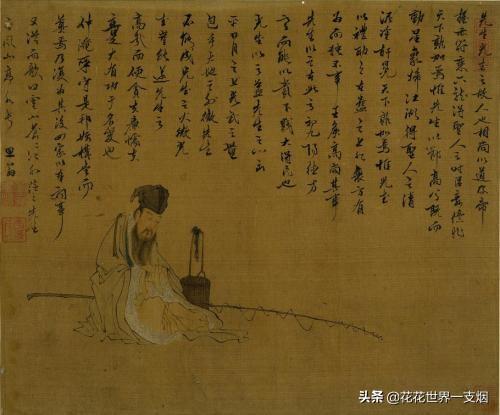 先生光武之故人也相尚以道及帝
握赤符乘六龍得聖人之時臣妾億兆
天下孰加焉惟先生以節高之既而
動星象歸江湖得聖人之清
泥塗軒冕天下孰加焉惟光武
以禮下之在蠱之上九眾方有
為而獨不事王侯高尚其事
先生以之在屯之初九陽德方
亨而能以貴下賤大得民也
光武以之蓋先生之心出
乎日月之上光武之量
包乎天地之外微先生
不能成光武之大微光武
豈能遂先生之
高哉而使貪夫廉懦夫
立是大有功于名教也
仲淹來守是邦始構堂而
奠焉乃復為其後四家以奉祠事
又從而歌曰雲山蒼蒼江水泱泱先生
之風山高水長
頭條 @花花世界一支烟